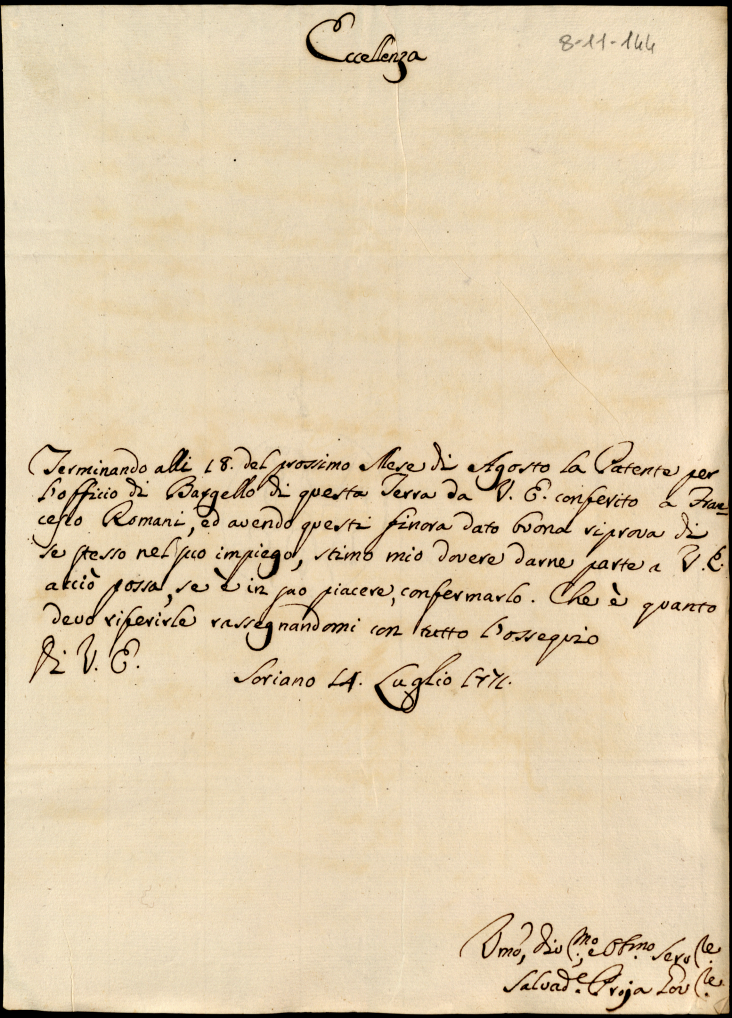 Eccellenza
8-11-144
Terminando alli 18. del prossimo Mese di Agosto la Patente per
l'officio di Bargello di questa Terra da V. E. conferito a Fran=
cesco Romani, ed avendo questi finora dato buona riprova di
se stesso nel suo impiego, stimo mio dovere darne parte a V. E.
acciò possa, se è in suo piacere, confermarlo. Che è quanto
devo riferirle rassegnandomi con tutto l'ossequio
Di V. E.
Soriano 14. Luglio 1771.
Umo, divmo, e Obmo Servre
Salvad.e Proja Govre